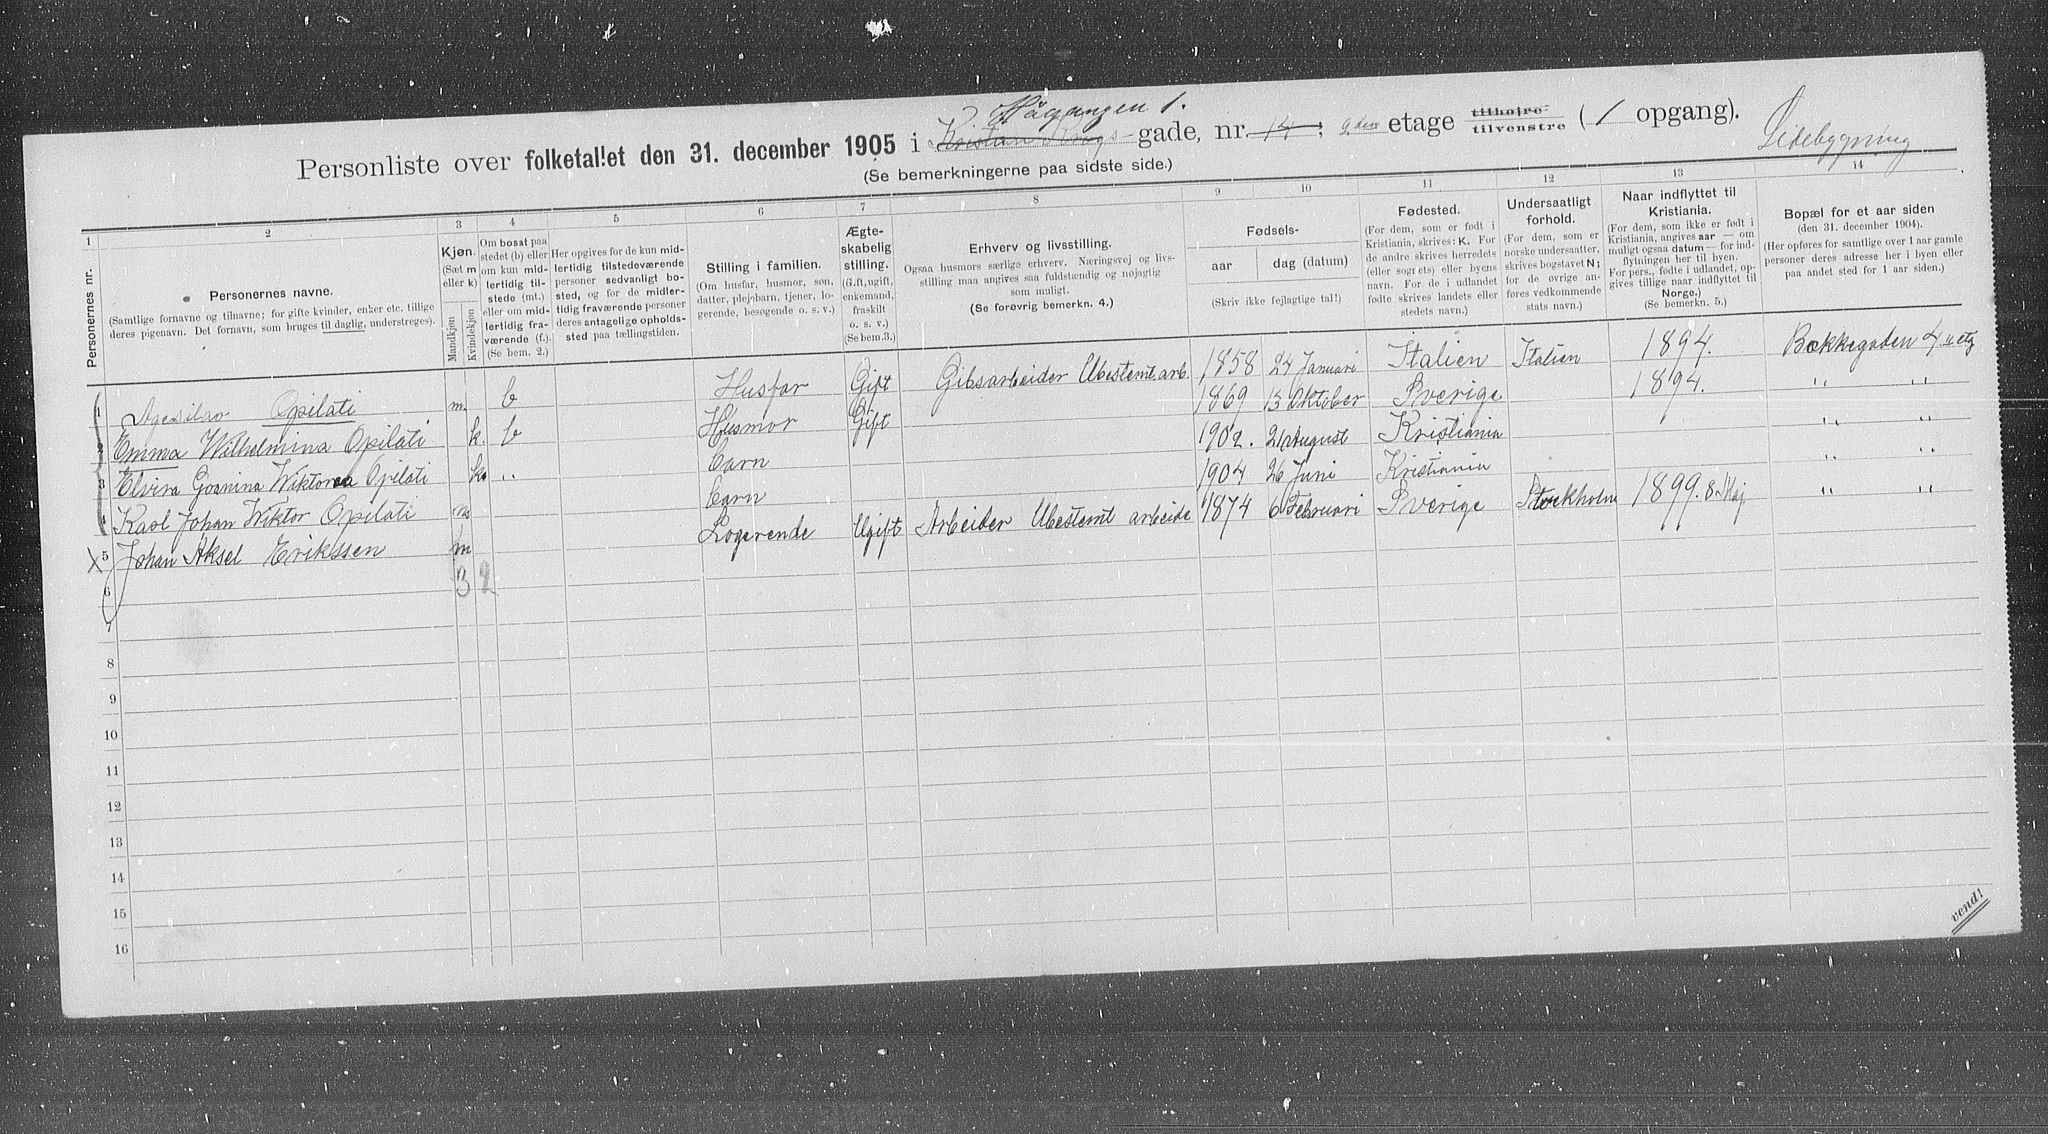 Hågangen 1.
Personliste over folketallet den 31. december 1905 i Kristian Krogs- gade, nr. 14; 2den etage tilhøjre tilvenstre (1 opgang). Sidebygning
(Se bemerkningerne paa sidste side.)
1 2 3 4 5 6 7 8 9 10 11 12 13 14
Personernes nr.
Personernes navne.
(Samtlige fornavne og tilnavne; for gifte kvinder, enker etc. tillige
deres pigenavn. Det fornavn, som bruges til daglig, understreges).
Kjøn.
(Sæt m
eller k)
Mandkjøn
Kvindekjøn
Om bosat paa
stedet (b) eller
om kun mid-
lertidig til-
stede (mt.)
eller om mid-
lertidig fra-
værende (f.).
(Se bem. 2.)
Her opgives for de kun mid-
lertidig tilstedeværende
personer sedvanligt bo-
sted, og for de midler-
tidig fraværende personer
deres antagelige opholds-
sted paa tællingstiden.
Stilling i familien.
(Om husfar, husmor, søn,
datter, plejebarn, tjener, lo-
gerende, besøgende o. s. v.)
Ægte-
skabelig
stilling.
(Gift, ugift,
enkemand,
fraskilt
o. s. v.)
(Se bem. 3.)
Erhverv og livsstilling.
Ogsaa husmors særlige erhverv. Næringsvej og livs-
stilling maa angives saa fuldstændig og nøjagtig
som muligt.
(Se forøvrig bemerkn. 4.)
Fødsels-
aar
dag (datum)
(Skriv ikke fejlagtige tal!)
Fødested.
(For dem, som er født i
Kristiania, skrives: K. For
de andre skrives herredets
(eller sognets) eller byens
navn. For de i udlandet
fødte skrives landets eller
stedets navn.)
Undersaatligt
forhold.
(For dem, som er
norske undersaatter,
skrives bogstavet N;
for de øvrige an-
føres vedkommende
stats navn.)
Naar indflyttet til
Kristiania.
(For dem, som ikke er født i
Kristiania, angives aar — om
muligt ogsaa datum — for ind-
flytningen her til byen.
For pers., fødte i udlandet, op-
gives tillige naar indflyttet til
Norge.)
(Se bemerkn. 5.)
Bopæl for et aar siden
(den 31. december 1904).
(Her opføres for samtlige over 1 aar gamle
personer deres adresse her i byen eller
paa andet sted for 1 aar siden.)
1 Agesilao Opilati m. b Husfar Gift Gibsarbeider Ubestemt arb. 1858 24 Januari Italien Italien 1894. Bokkegaden 4 " etg
2 Emma Wilhelmina Opilati k. b Husmor Gift 1869 13 Oktober Sverige 1894. " "
3 Elvira Goanina Wiktoria Opilati k. " barn 1902. 21 August Kristiania " "
4 Karl Johan Wiktor Opilati m barn 1904 26 Juni Kristiania " "
X 5 Johan Aksel Erikssen m Logerende Ugift Arbeider Ubestemt arbeide 1874 6 Februari Sverige Stockholm 1899. 8 Maj " "
6 3 2
7
8
9
10
11
12
13
14
15
16
vend!